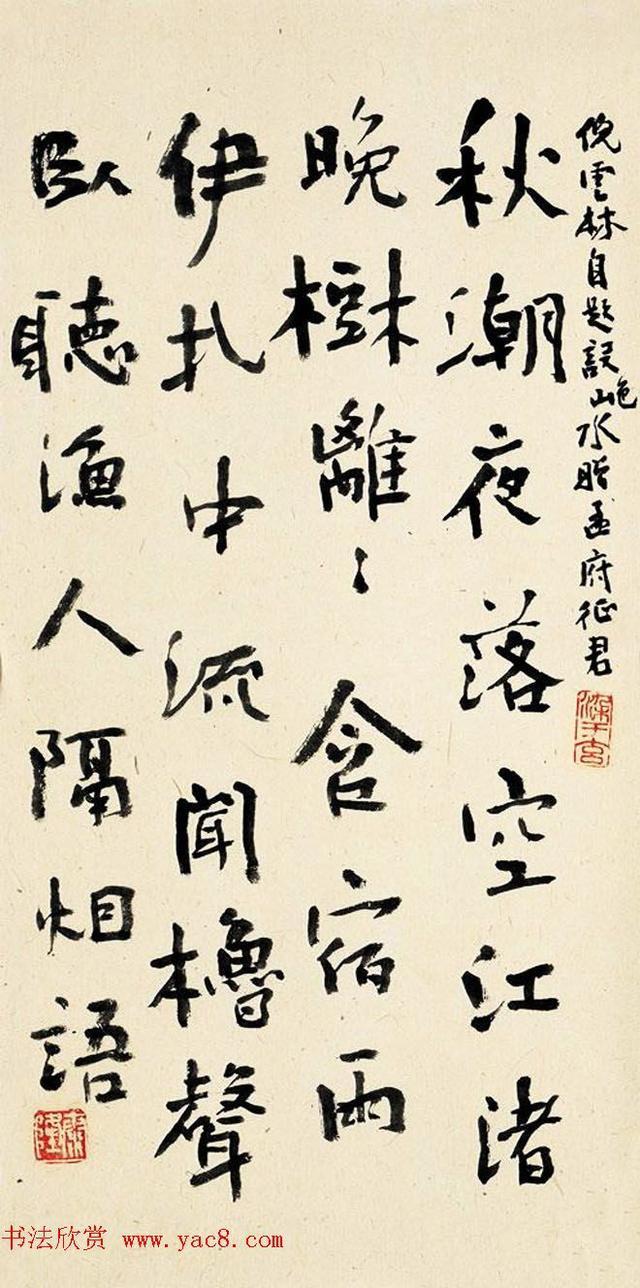 倪雲林自題設色山水贈孟府征君
秋潮夜落空江渚
晚樹離〻含宿雨
伊扎中流聞櫓聲
臥聽漁人隔烟語
书法欣赏 www.yac8.com